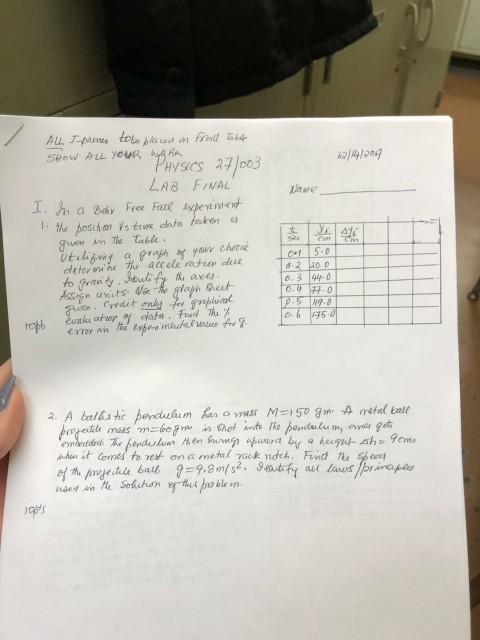 ALL I-phones to be placed on front Table
SHOW ALL YOUR WORK
PHYSICS 27/003
12/14/2017
LAB FINAL
Name
I. In a Behr Free Fall experiment
1. the position Vs time data taken is
given in the Table.
Utilizing a graph of your choice
determine the acceleration due
to gravity. Identify the axes.
Assign units. Use the graph sheet
given. Credit only for graphical
evaluation of data. Find the %
error in the experimental value for g.
10pts
t sec yi cm Δyi cm
0.1 5.0
0.2 20.0
0.3 44.0
0.4 77.0
0.5 119.0
0.6 175.0
2. A ballistic pendulum has a mass M=150 gm. A metal ball
projectile mass m=60gms is shot into the pendulum, and gets
embedded. The pendulum then swings upward by a height Δh= 9cms
when it comes to rest on a metal rack notch. Find the speed
of the projectile ball g=9.8m/s². Identify all laws/principles
used in the solution of this problem.
10pts